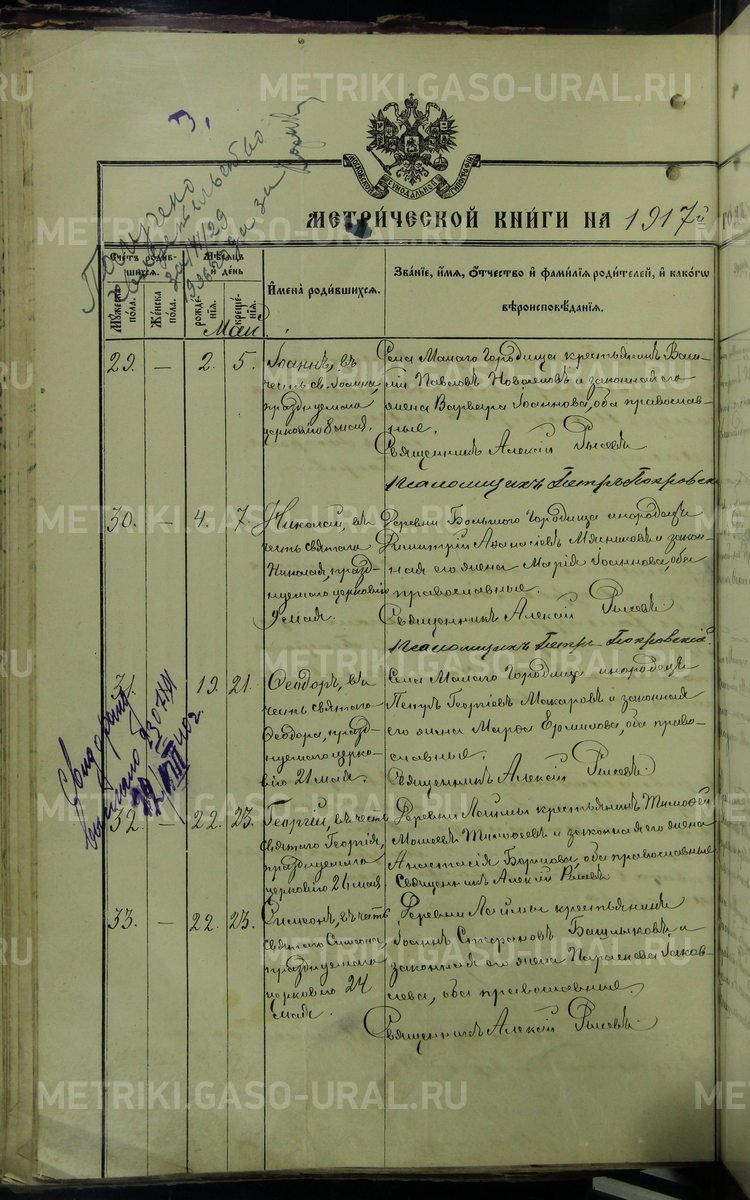 METRIKI.GASO-URAL.RU
3.
Получено
свидетельство
МЕТРИ́ЧЕСКОЙ КНИ́ГИ НА 1917й
Счетъ родив-
шихся.
Мѣсяцъ
и день
Мужеска
пола.
Женска
пола.
рожде-
нія.
креще-
нія.
И҆мена̀ роди́вшихся.
Зва́нїе, и҆́мѧ, ѻ҆́тчество и҆ фами́лїѧ роди́телей, и҆ како́гѡ
вѣроисповѣ́данїѧ.
Май
29. — 2. 5.
Іоаннъ, въ
честь св. Іоанна,
празднуемаго
церковію 8 мая.
Села Малаго Городища крестьянинъ Васи-
лій Павловъ и законная его
жена Варвара Іоаннова, оба православ-
ные.
Священникъ Алексій
Псаломщикъ Петръ Покровскі
30. — 4. 7.
Николай, въ
честь святаго
Николая, празд-
нуемаго церковію
9 мая.
Деревни Большого Городища инородецъ
Димитрій Аѳанасіевъ Мясниковъ и закон-
ная его жена Марія Іоаннова, оба
православные.
Священникъ Алексій
Псаломщикъ Петръ Покровскій.
31. 19. 21.
Ѳеодоръ, въ
честь святаго
Ѳеодора, празд-
нуемаго церко-
вію 21 мая.
Села Малаго Городища инородецъ
Петръ Георгіевъ Макаровъ и законная
его жена Марѳа Ермилова, оба право-
славные.
Священникъ Алексій
32. — 22. 23.
Георгій, въ честь
святаго Георгія,
празднуемаго
церковію 26 мая
Деревни Лаймы крестьянинъ Тимоѳей
Моисеевъ Тимоѳеевъ и законная его жена
Анастасія Борисова, оба православные
Священникъ Алексій
33. — 22. 23.
Симеонъ, въ честь
святаго Симеона,
празднуемаго
церковію 24
мая.
Деревни Лаймы крестьянинъ
Іоаннъ Стефановъ Башлыковъ и
законная его жена Параскева Іаков-
лева, оба православные.
Священникъ Алексій